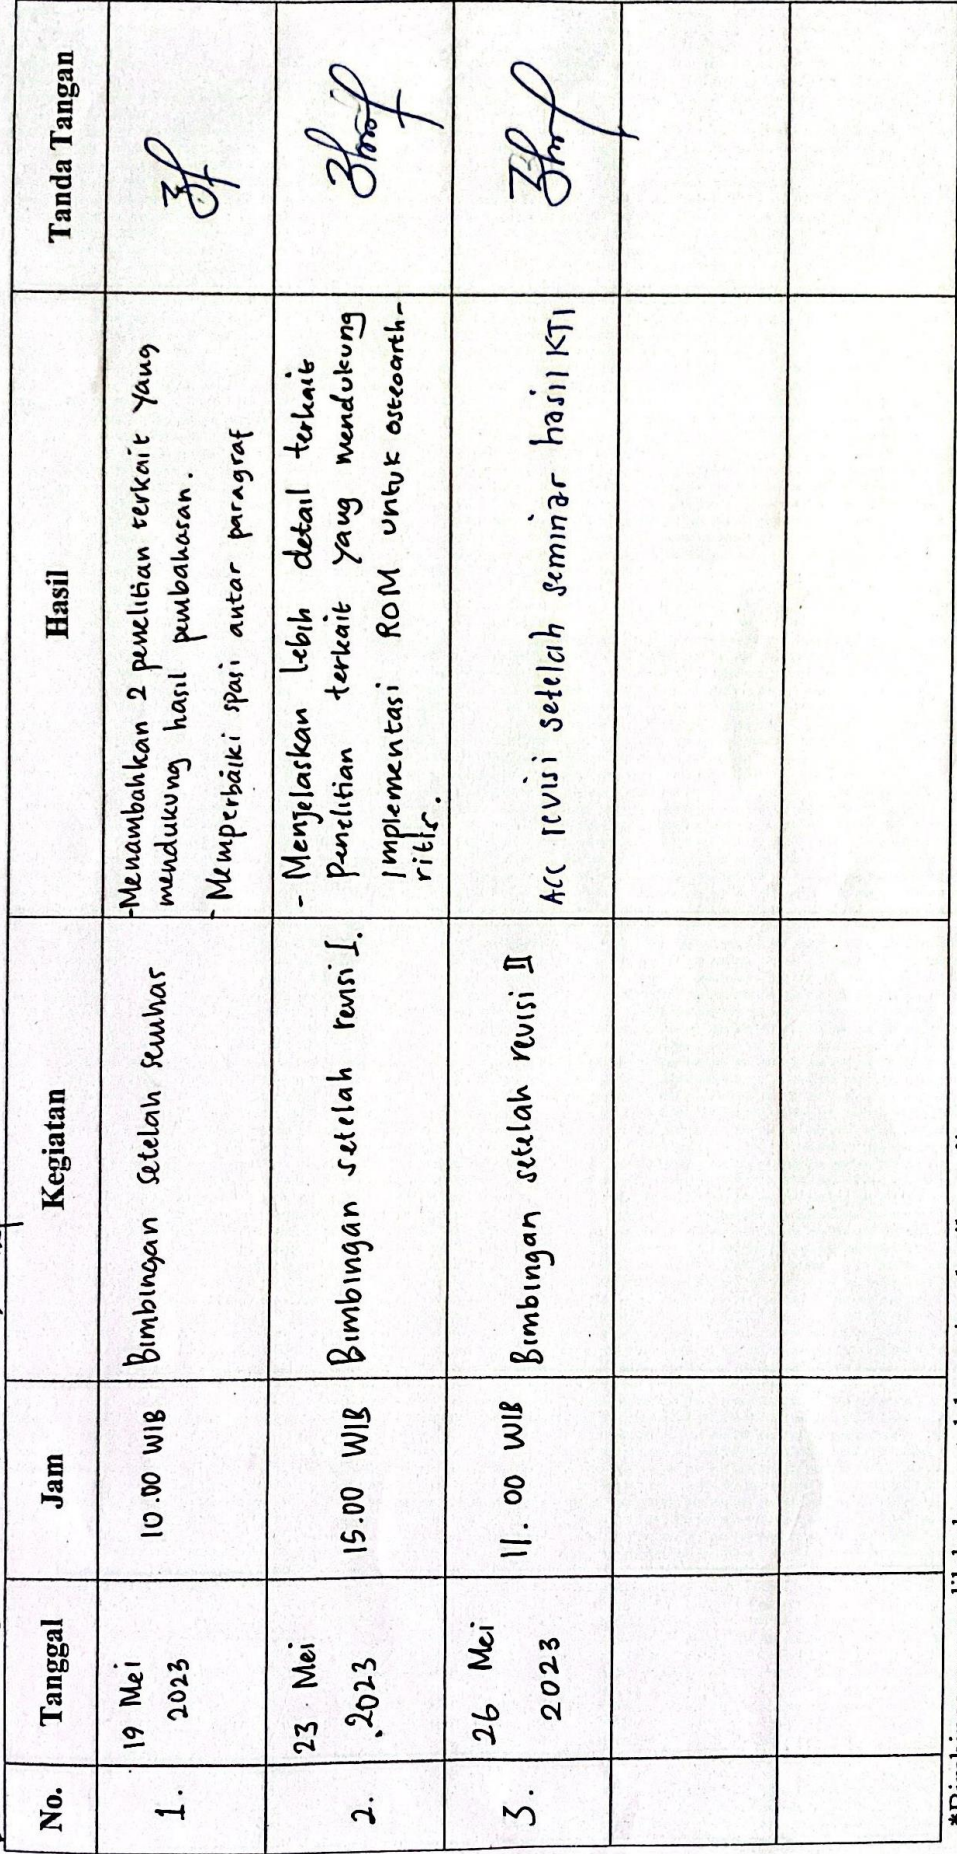 No. Tanggal Jam Kegiatan Hasil Tanda Tangan
1. 19 Mei 2023 10.00 WIB Bimbingan setelah semhas
-Menambahkan 2 penelitian terkait yang
mendukung hasil pembahasan.
- Memperbaiki spasi antar paragraf
2. 23 Mei 2023 15.00 WIB Bimbingan setelah revisi I.
- Menjelaskan lebih detail terkait
Penelitian terkait yang mendukung
Implementasi ROM untuk osteoarth-
ritis.
3. 26 Mei 2023 11.00 WIB Bimbingan setelah revisi II
ACC revisi setelah seminar hasil KTI